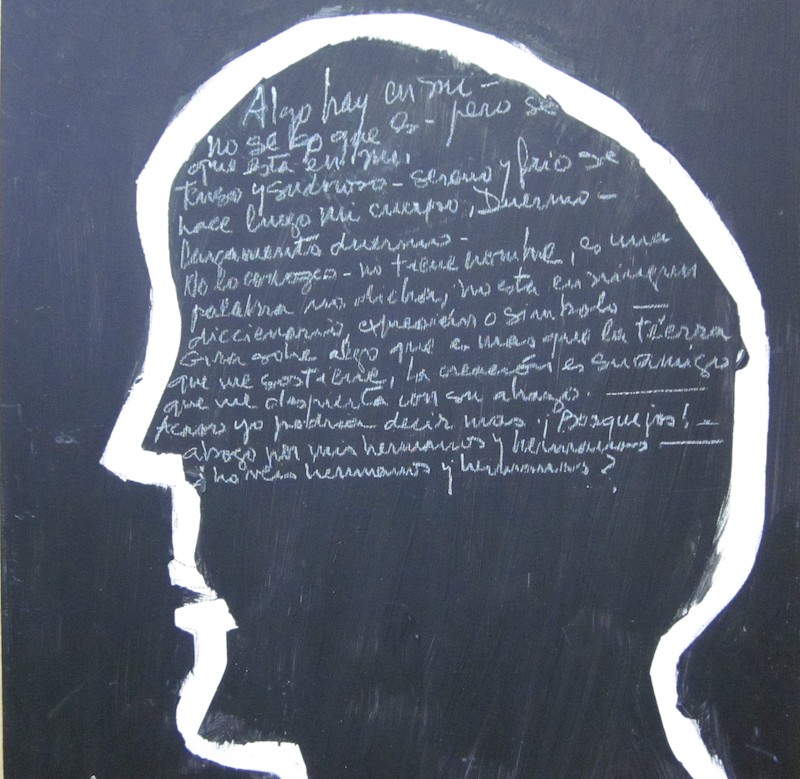 Algo hay en mi -
no se lo que es - pero se
que esta en mi.
Tenso y sudoroso - sereno y frio se
hace luego mi cuerpo, Duermo -
Largamente duermo -
No lo conozco - no tiene nombre, es una
palabra no dicha, no esta en ningun
diccionario, expresión o simbolo —
Gira sobre algo que es mas que la tierra
que me sostiene, la creación es su amigo
que me despierta con su abrazo. —
Acaso yo podria decir mas. ¡Bosquejos! -
abogo por mis hermanos y hermanas —
¿No veis hermanos y hermanas?